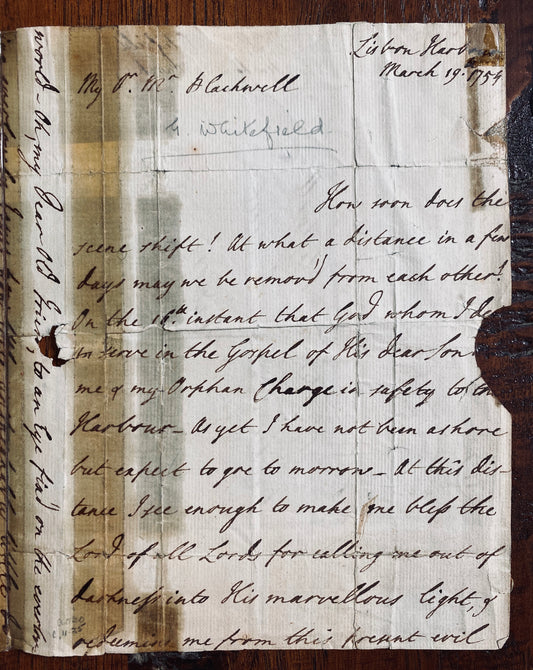 Lisbon Harbour
March 19th 1754
My Dr. Mr. Blackwell
G. Whitefield
How soon does the
scene shift! At what a distance in a few
days may we be remov'd from each other!
On the 16th instant that God whom I de
in serve in the Gospel of His Dear Son
me & my Orphan Charge in safety to th
Harbour – As yet I have not been ashore
but expect to goe to morrow – At this dis-
tance I see enough to make me bless the
Lord of all Lords for calling me out of
darkness into His marvellous light, &
redeeming me from this present evil
world – Oh, my Dear old Friend, to an Eye fix'd on the